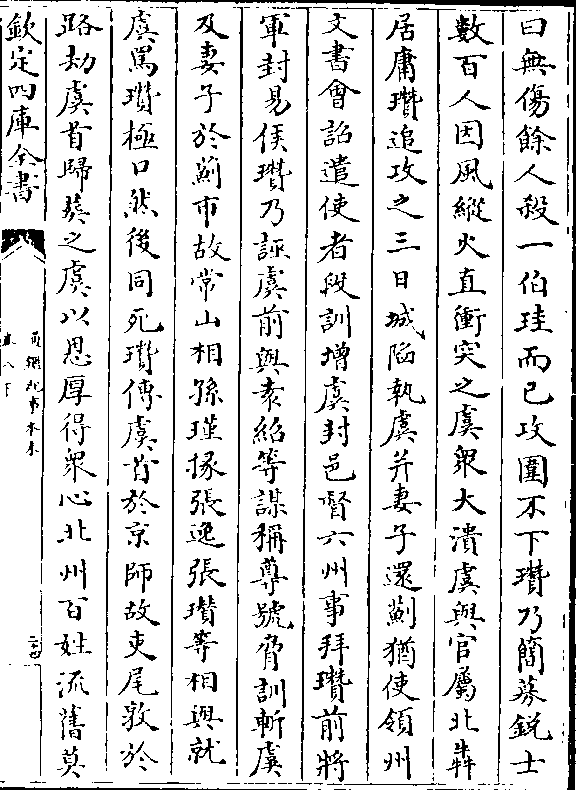 曰無傷餘人殺一伯珪而已攻圍不下瓚乃簡募鋭士
數百人因風縱火直衝突之虞衆大潰虞與官屬北犇
居庸瓚追攻之三日城陷執虞并妻子還薊猶使領州
文書會詔遣使者段訓增虞封邑督六州事拜瓚前將
軍封易侯瓚乃誣虞前與袁紹等謀稱尊號脅訓斬虞
及妻子於薊市故常山相孫瑾掾張逸張瓚等相與就
虞罵瓚極口然後同死瓚傳虞首於京師故吏尾敦於
路劫虞首歸葬之虞以恩厚得衆心北州百姓流舊莫
欽定四庫全書